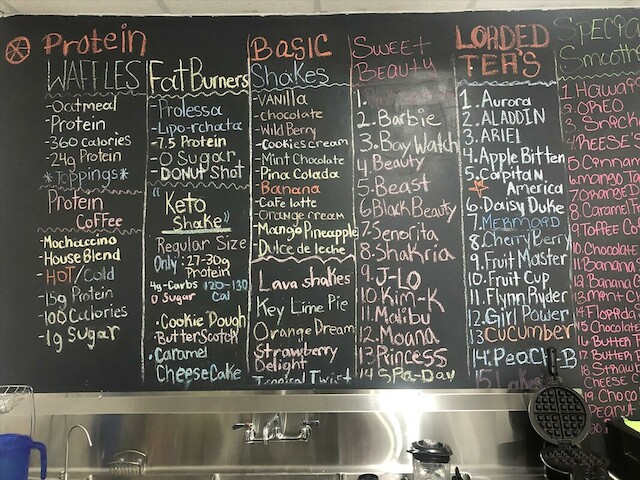 Protein
WAFFLES
-Oatmeal
-Protein
-360 calories
-24g Protein
*Toppings*
Protein
Coffee
-Mochaccino
-House Blend
-HOT/Cold
-15g Protein
-100 Calories
-1g Sugar
Fat Burners
-Prolessa
-Lipo-rchata
-7.5 Protein
-0 Sugar
-DONUT Shot
"Keto
Shake"
Regular Size
Only: 27-30g
Protein
4g-Carbs 120-130
0 Sugar Cal
.Cookie Dough
.ButterScotch
.Caramel
CheeseCake
BASIC
Shakes
-VANILLA
-chocolate
-Wild Berry
-cookies cream
-Mint Chocolate
-Pina Colada
Banana
-Cafe latte
-Orange cream
-Mango Pineapple
-Dulce de leche
Lava shakes
Key Lime Pie
Orange Dream
Strawberry
Delight
Tropical Twist
Sweet
Beauty
1.
2. Barbie
3. Bay Watch
4. Beauty
5. Beast
6. Black Beauty
7. Senorita
8. Shakria
9. J-LO
10. Kim-K
11. Malibu
12. Moana
13 Princess
14 SPa-Day
LOADED
TEA'S
1. Aurora
2. ALADDIN
3. ARIEL
4. Apple Bitten
5. Capitan
America
6. Daisy Duke
7. MERMAID
8. Cherry Berry
9. Fruit Master
10. Fruit Cup
11. Flynn Ryder
12. Girl Power
13 CUCUMBER
14. PeaCh-B
15 Lakes
Specia
Smooth
1 Hawai
2. OREO
3. Snick
4. REESE'S
5. Cinnam
6. mango Ta
7. Orange D
8. Caramel
9. Toffee Co
10. Chocolate
11. Banana
12. Banana
13. Mint C
14. Florida
15. Chocolate
16. Butter
17. Butter F
18. Straw
Cheese C
19. Choco
Peanut
20.